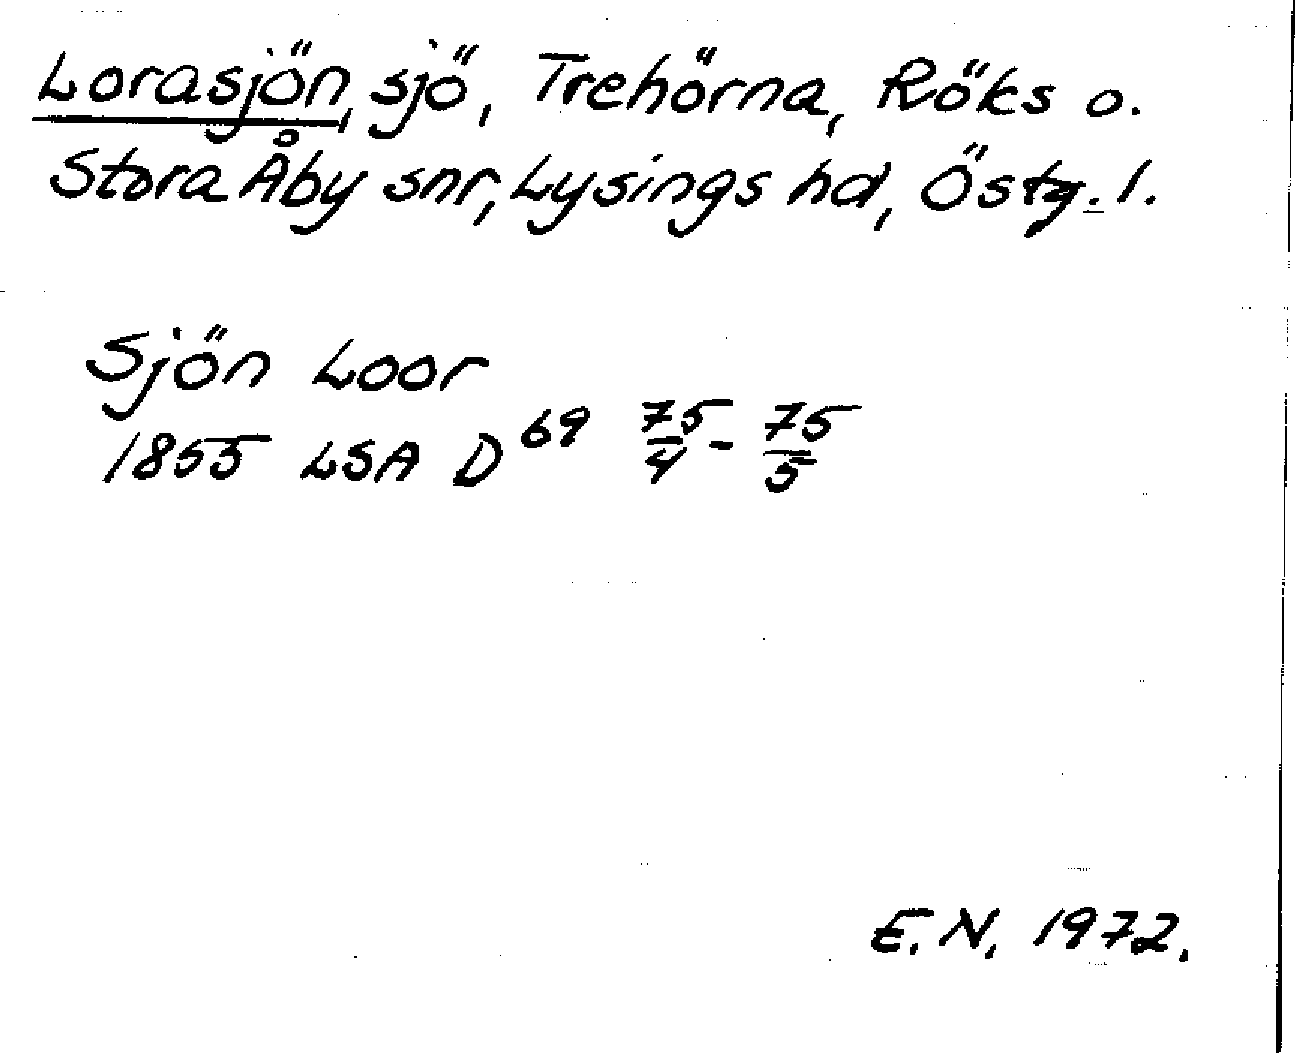 Lorasjön, sjö, Trehörna, Röks o.
Stora Åby snr, Lysings hd, Östg. l.
Sjön Loor
1855 LSA D69 75/4 - 75/5
E.N. 1972.